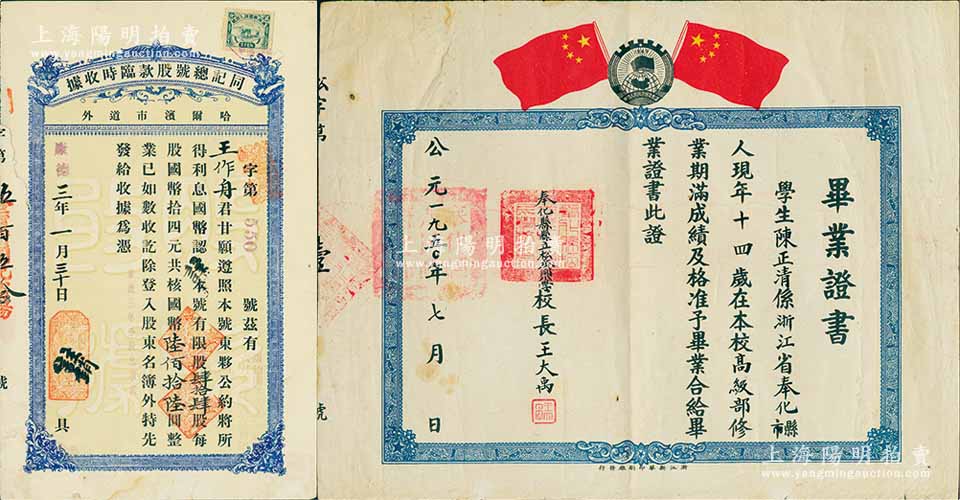 上海陽明拍賣
www.yangmingauction.com
同記總號股款臨時收據
哈爾濱市道外
字第 550 號茲有
王作舟君甘願遵照本號東夥公約將所
得利息國幣認 本號有限股肆拾肆股每
股國幣拾四元共核國幣陸佰拾陸圓整
業已如數收訖除登入股東名簿外特先
發給收據爲憑
康德三年一月三十日 具
字第
號
畢業證書
學生陳正清係浙江省奉化縣市
人現年十四歲在本校高級部修
業期滿成績及格准予畢業合給畢
業證書此證
校長王大禹
公元一九五〇年七月 日
號
浙江新華印刷廠發行
上海陽明拍賣
www.yangmingauction.com
上海陽明拍賣
www.yangmingauction.com